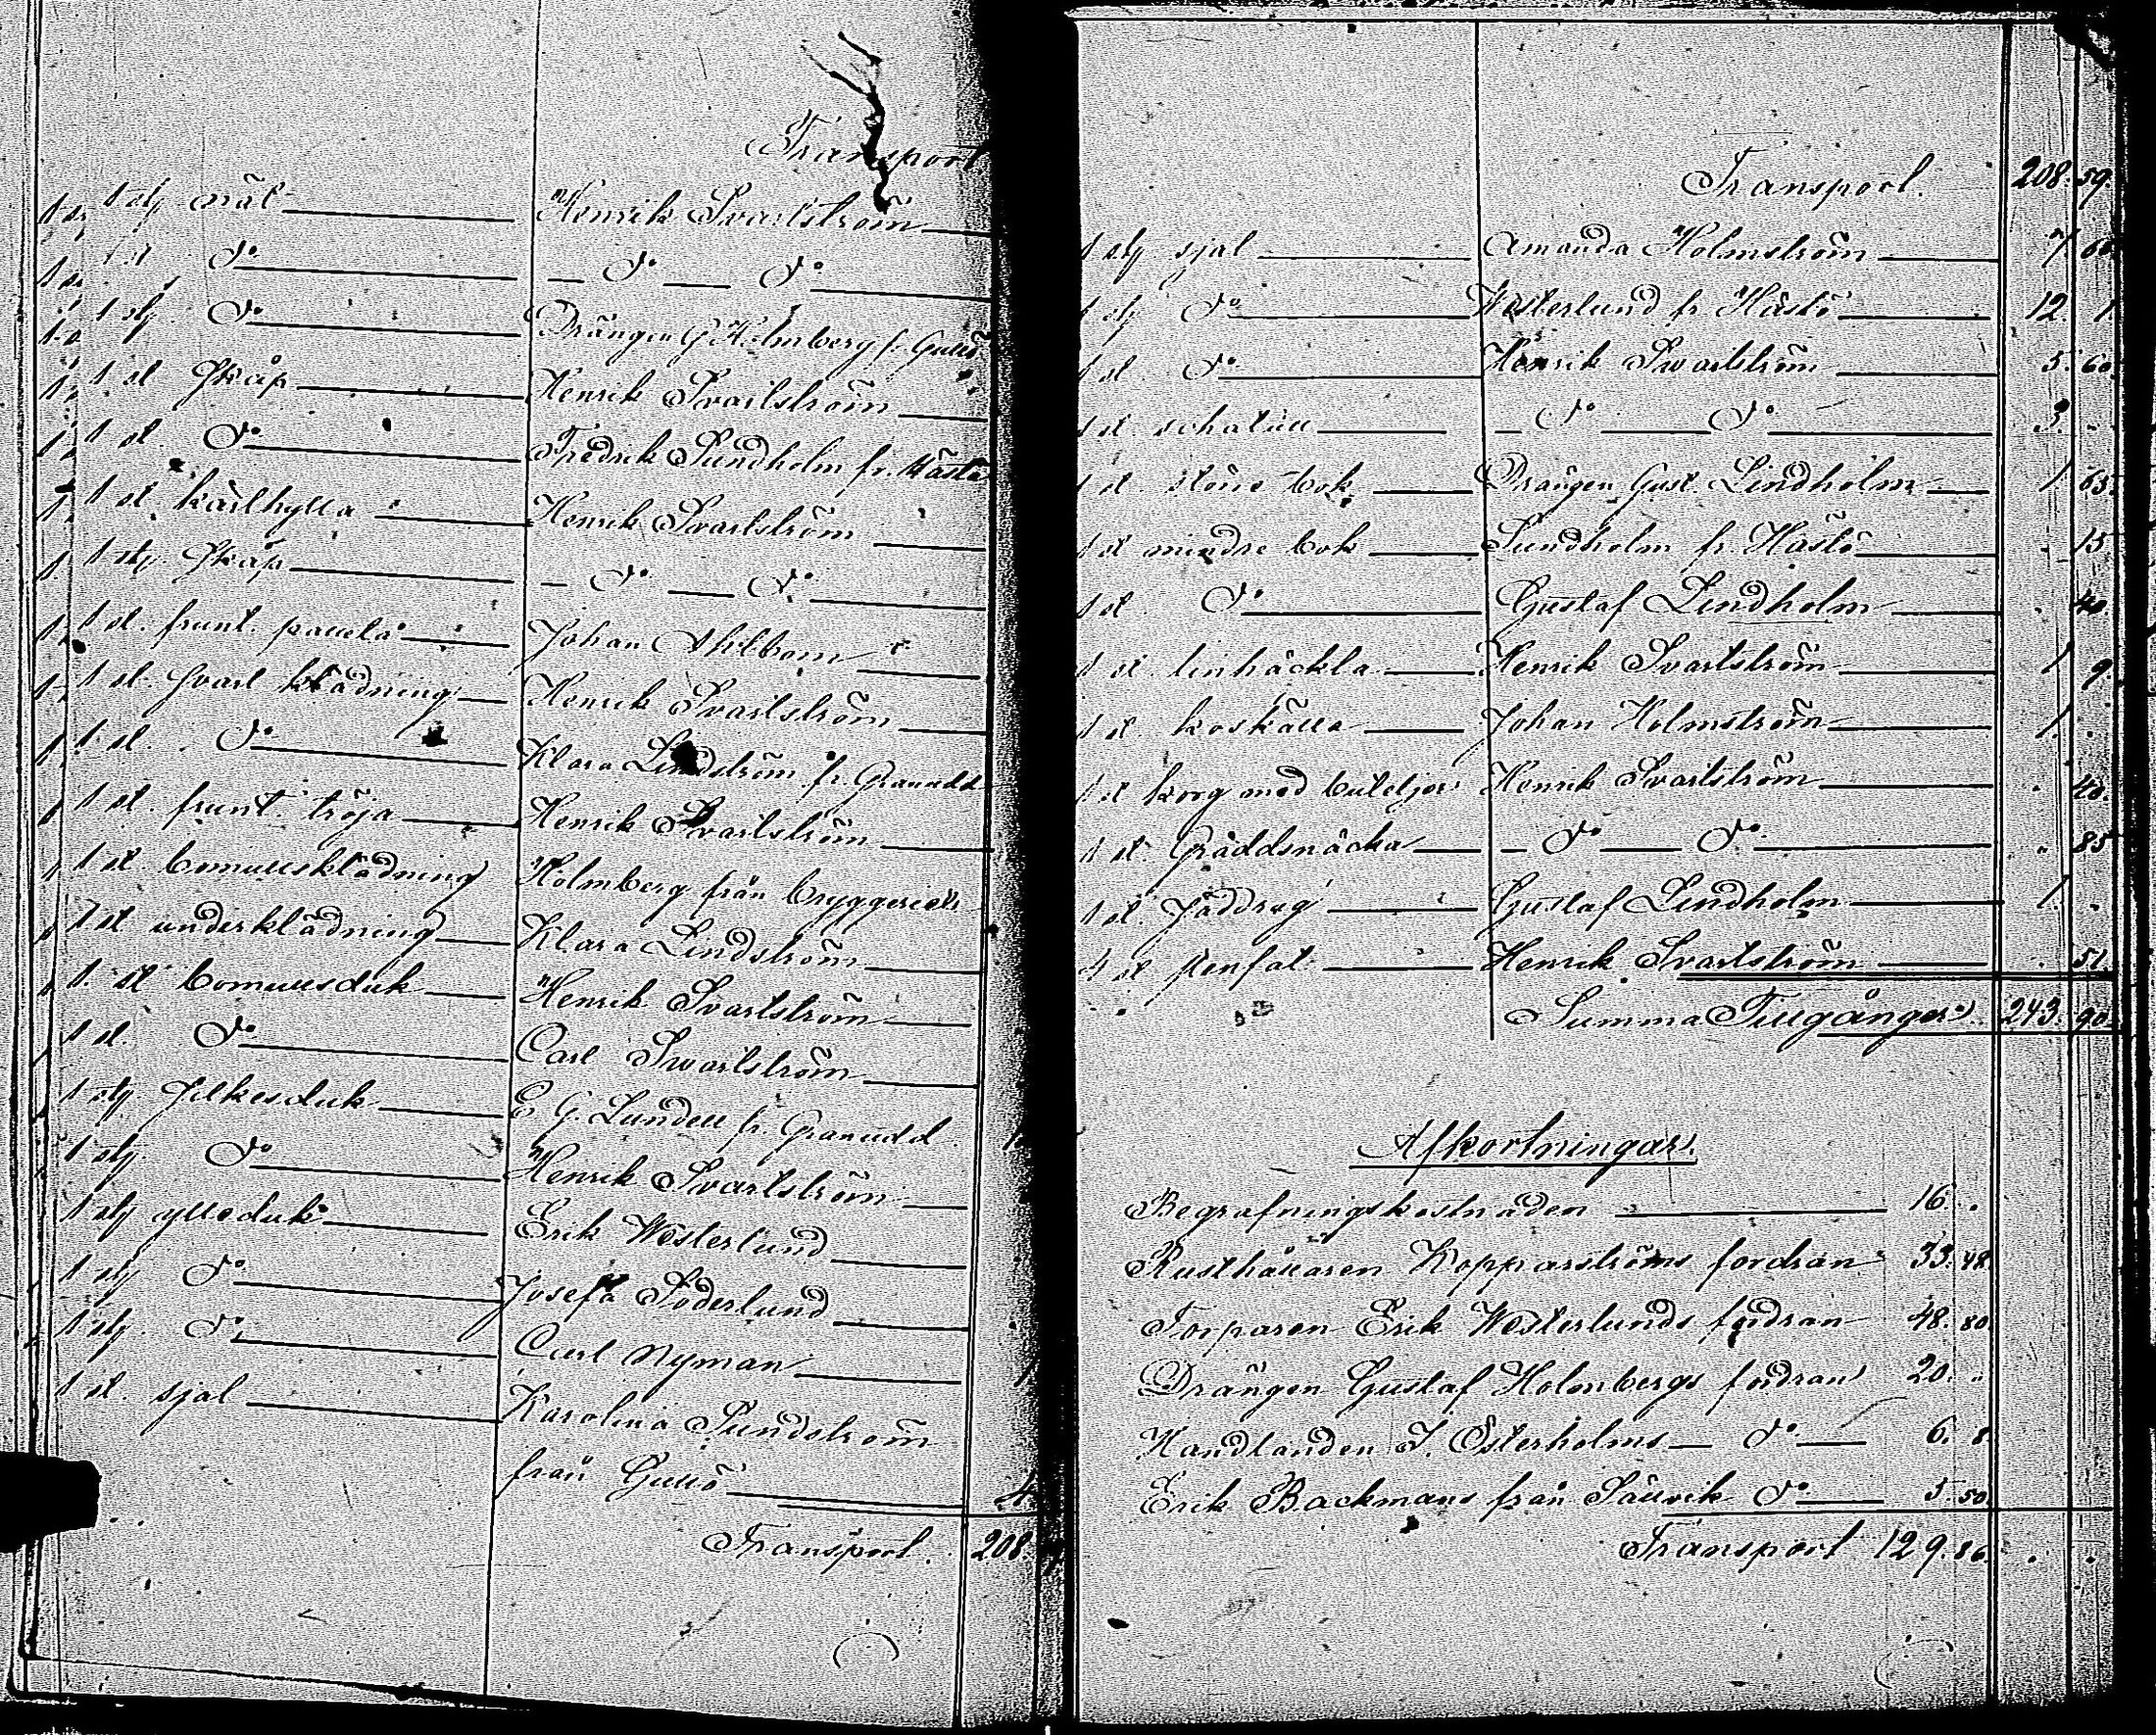 Transport
1 stj nät Henrik Svartström
1 st do do do
1 stj do Drängen G Holmberg fr. Gullö
1 st skåp Henrik Svartström
1 st do Fredrik Sundholm fr. Hästö
1 st kärlhylla Henrik Svartström
1 stj skåp do do
1 st. frunt. Johan Ahlbom
1 st. svart klädning Henrik Svartström
1 st. do Klara Lindström fr. Granudd
1 st. frunt. tröja Henrik Svartström
1 st bomullsklädning Holmberg från bryggeriet
1 st underklädning Klara Lindström
1 st bomullsduk Henrik Svartström
1 st do Carl Svartström
1 stj silkesduk E G. Lundell fr. Granudd
1 stj. do Henrik Svartström
1 stj ylleduk Erik Westerlund
1 stj do Josefa Söderlund
1 stj. do Carl Nyman
1 st. sjal Karolina Sundström
från Gullö 4
Transport. 208.
Transport. 208. 59.
1 stj sjal Amanda Holmström 7 60
1 stj do Westerlund fr Hästö 12. 1
1 st do Henrik Svartström 5. 60.
1 st. schatull do do 3. .
1 st. större bok Drängen Gust. Lindholm 1 65.
1 st mindre bok Sundholm fr. Hästö . 15
1 st do Gustaf Lindholm . 40.
1 st linhäckla Henrik Svartström 1 9.
1 st koskälla Johan Holmström 1. .
1 st korg med buteljer Henrik Svartström . 40.
1 st. Gräddsnäcka do do . 85
1 st. Gäddrag Gustaf Lindholm 1. .
4 st stenfat Henrik Svartström . 51.
Summa Tillgångar 243. 90.
Afkortningar.
Begrafningskostnaden 16. .
Rusthållaren Kopparströms fordran 33. 48.
Torparen Erik Westerlunds fordran 48. 80.
Drängen Gustaf Holmbergs fordran 20. "
Handlanden J. Österholms do 6. 8
Erik Backmans från Sällvik do 5. 50
Transport 129. 86. . .